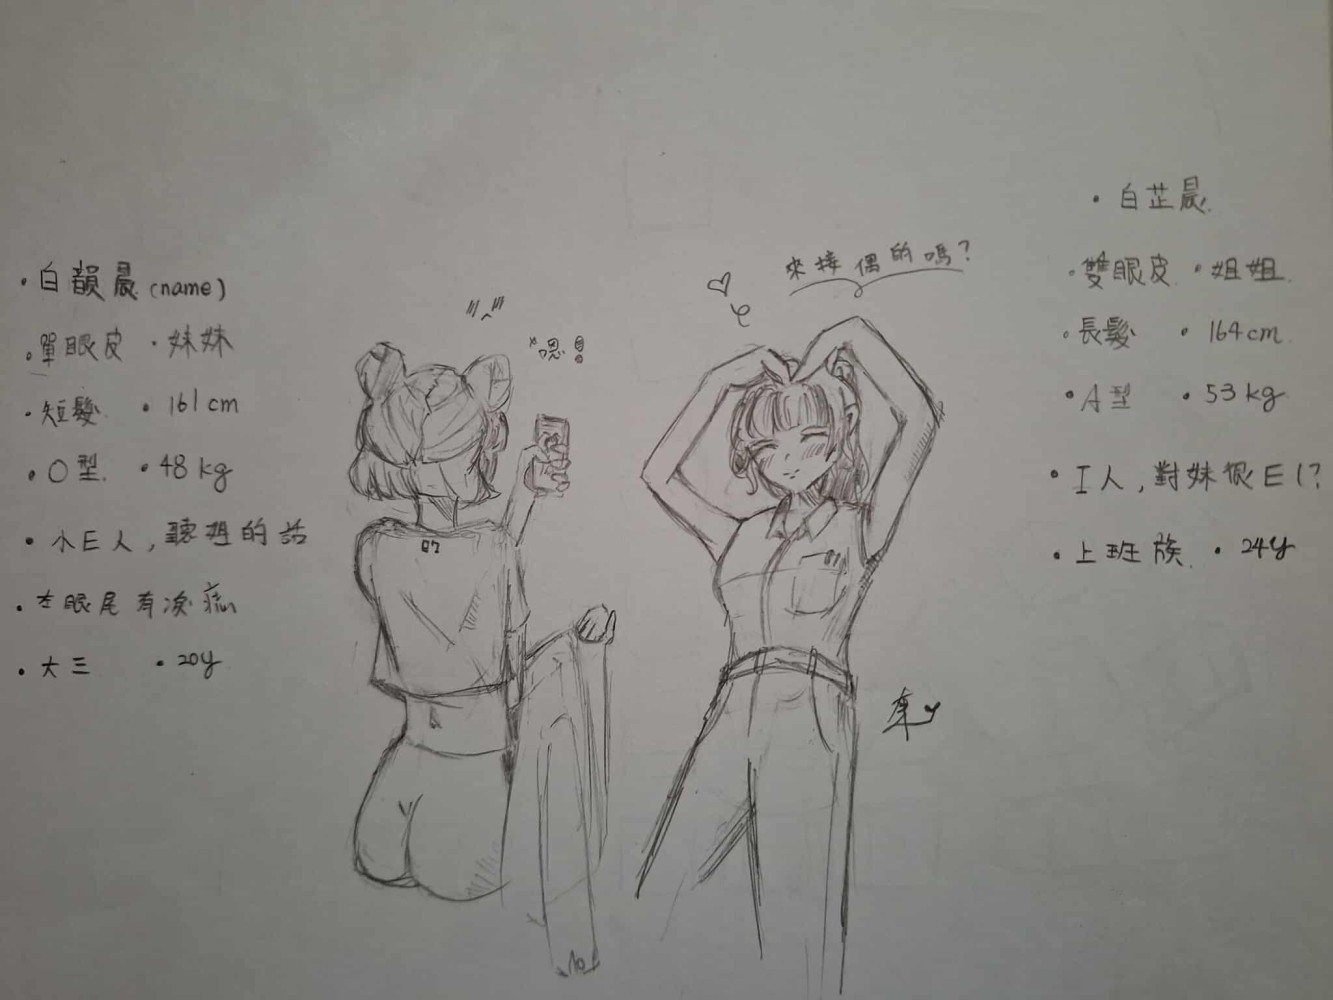 • 白韻晨 (name)
• 單眼皮 • 妹妹
• 短髮 • 161 cm
• O型 • 48 kg
• 小E人，聽姐的話
• 左眼尾有淚痣
• 大三 • 20y
"嗯!
07
來接偶的嗎?
• 白芷晨
• 雙眼皮 • 姐姐
• 長髮 • 164cm
• A型 • 53kg
• I人，對妹很E!?
• 上班族 • 24y